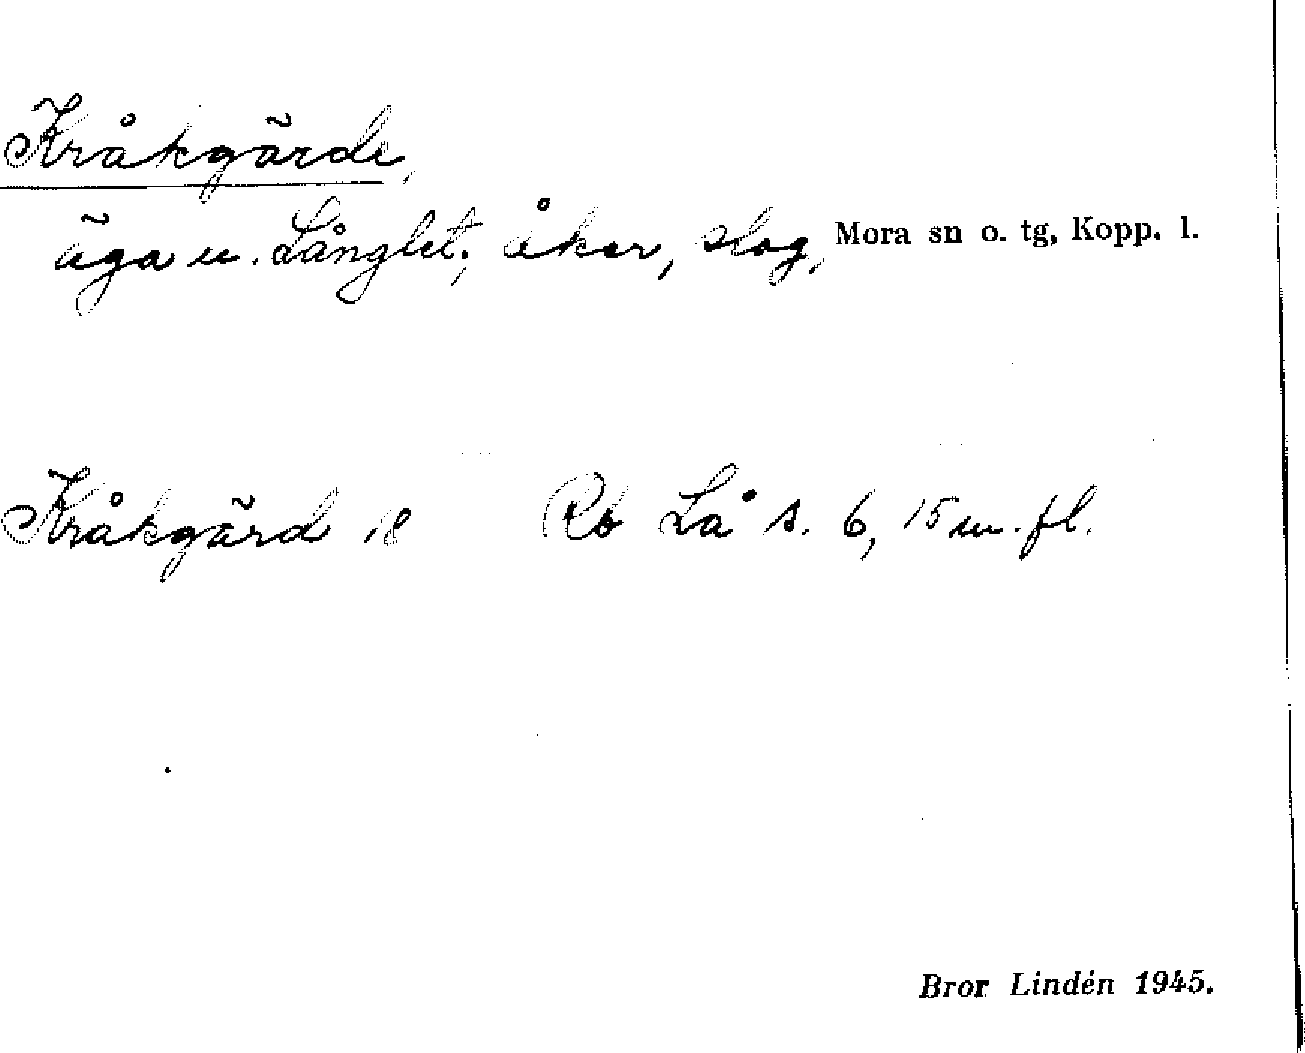 Kråkgärde,
äga u. Långlet; åker, slog, Mora sn o. tg, Kopp. l.
Kråkgärd 18 Rb Lå s. 6, 15 m. fl.
Bror Lindén 1945.